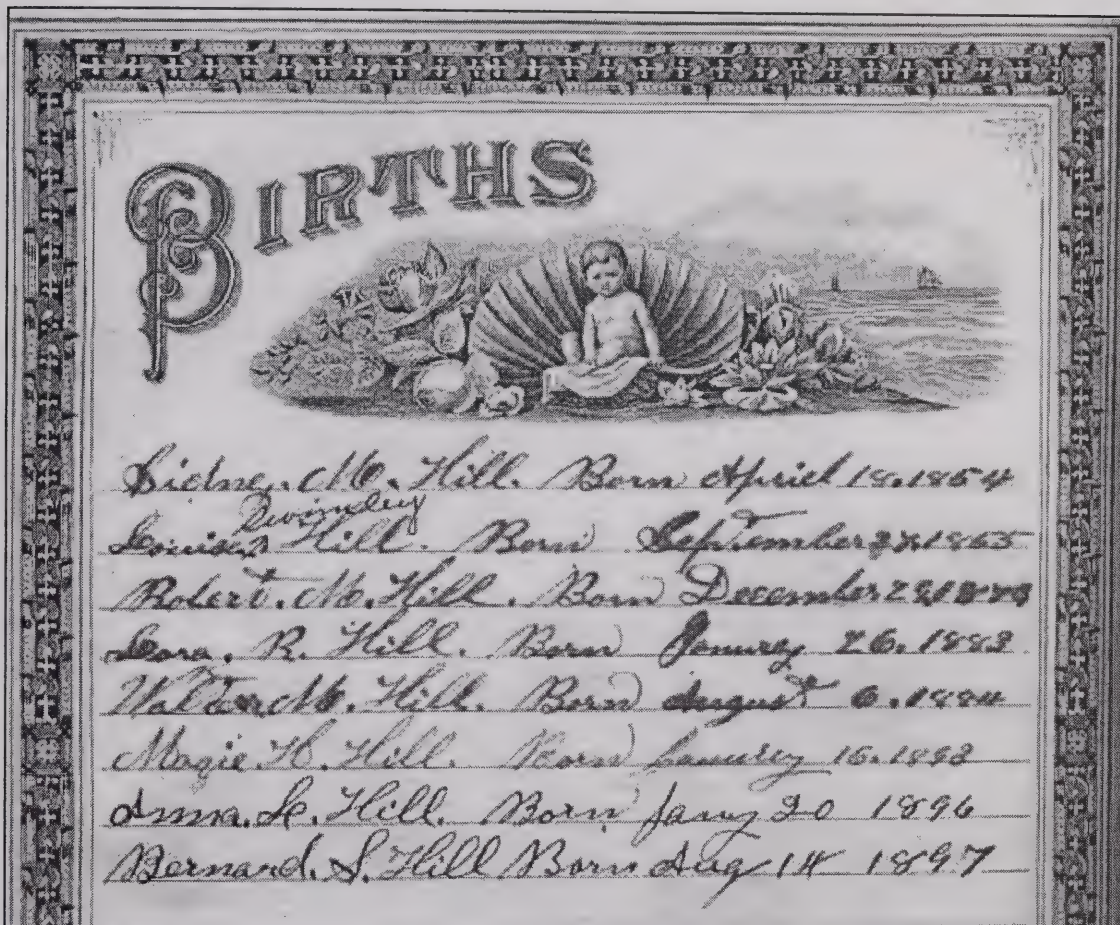 BIRTHS
Sidney. M. Hill. Born April 18. 1854
Louisa Hill. Born September 1865
Robert. M. Hill. Born December
Lora. R. Hill. Born Janurey 26. 1883
Walter M. Hill. Born August 6. 1884
Magie H. Hill. Born Janurey 16. 1893
Anna. L. Hill. Born Jany 20 1896
Bernard. S. Hill Born Aug 14 1897